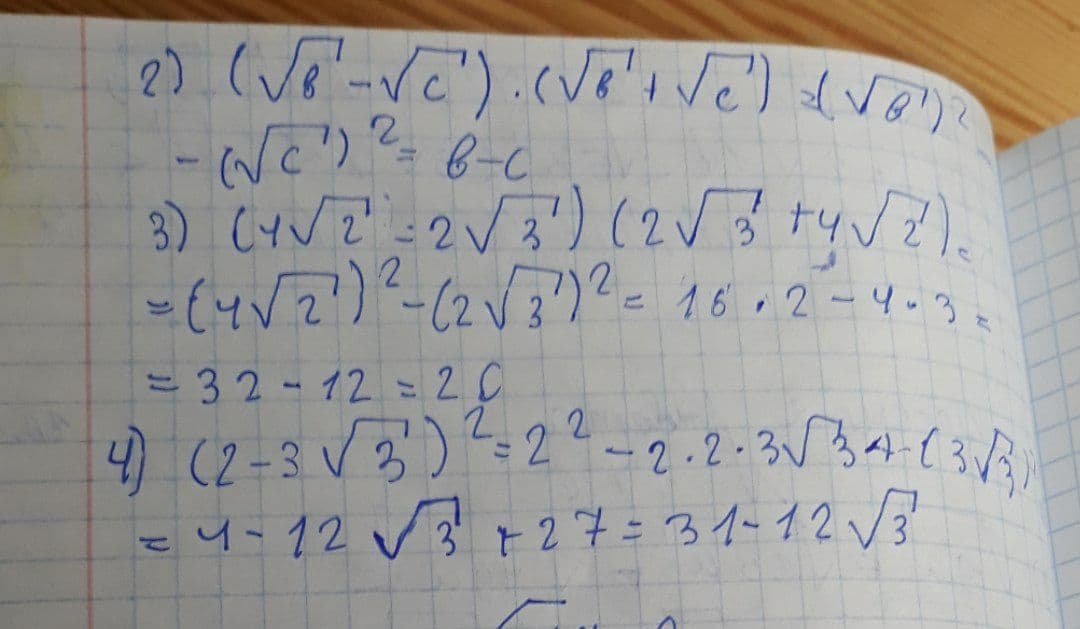 2) (√в - √c) · (√в + √c) = (√в)²
- (√c)² = в - c
3) (4√2 - 2√3) (2√3 + 4√2) =
= (4√2)² - (2√3)² = 16 · 2 - 4 · 3 =
= 32 - 12 = 20
4) (2 - 3√3)² = 2² - 2 · 2 · 3√3 + (3√3)
= 4 - 12√3 + 27 = 31 - 12√3